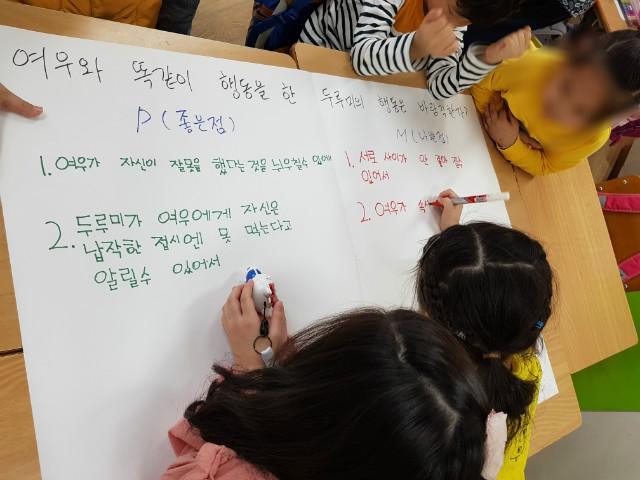 여우와 똑같이 행동을 한 두루미의 행동은 바람직한가?
P (좋은점)
1. 여우가 자신이 잘못을 했다는 것을 뉘우칠수 있어
2. 두루미가 여우에게 자신은
납작한 접시엔 못 먹는다고
알릴수 있어서
M (나쁜점)
1. 서로 사이가 안
있어서
2. 여우가